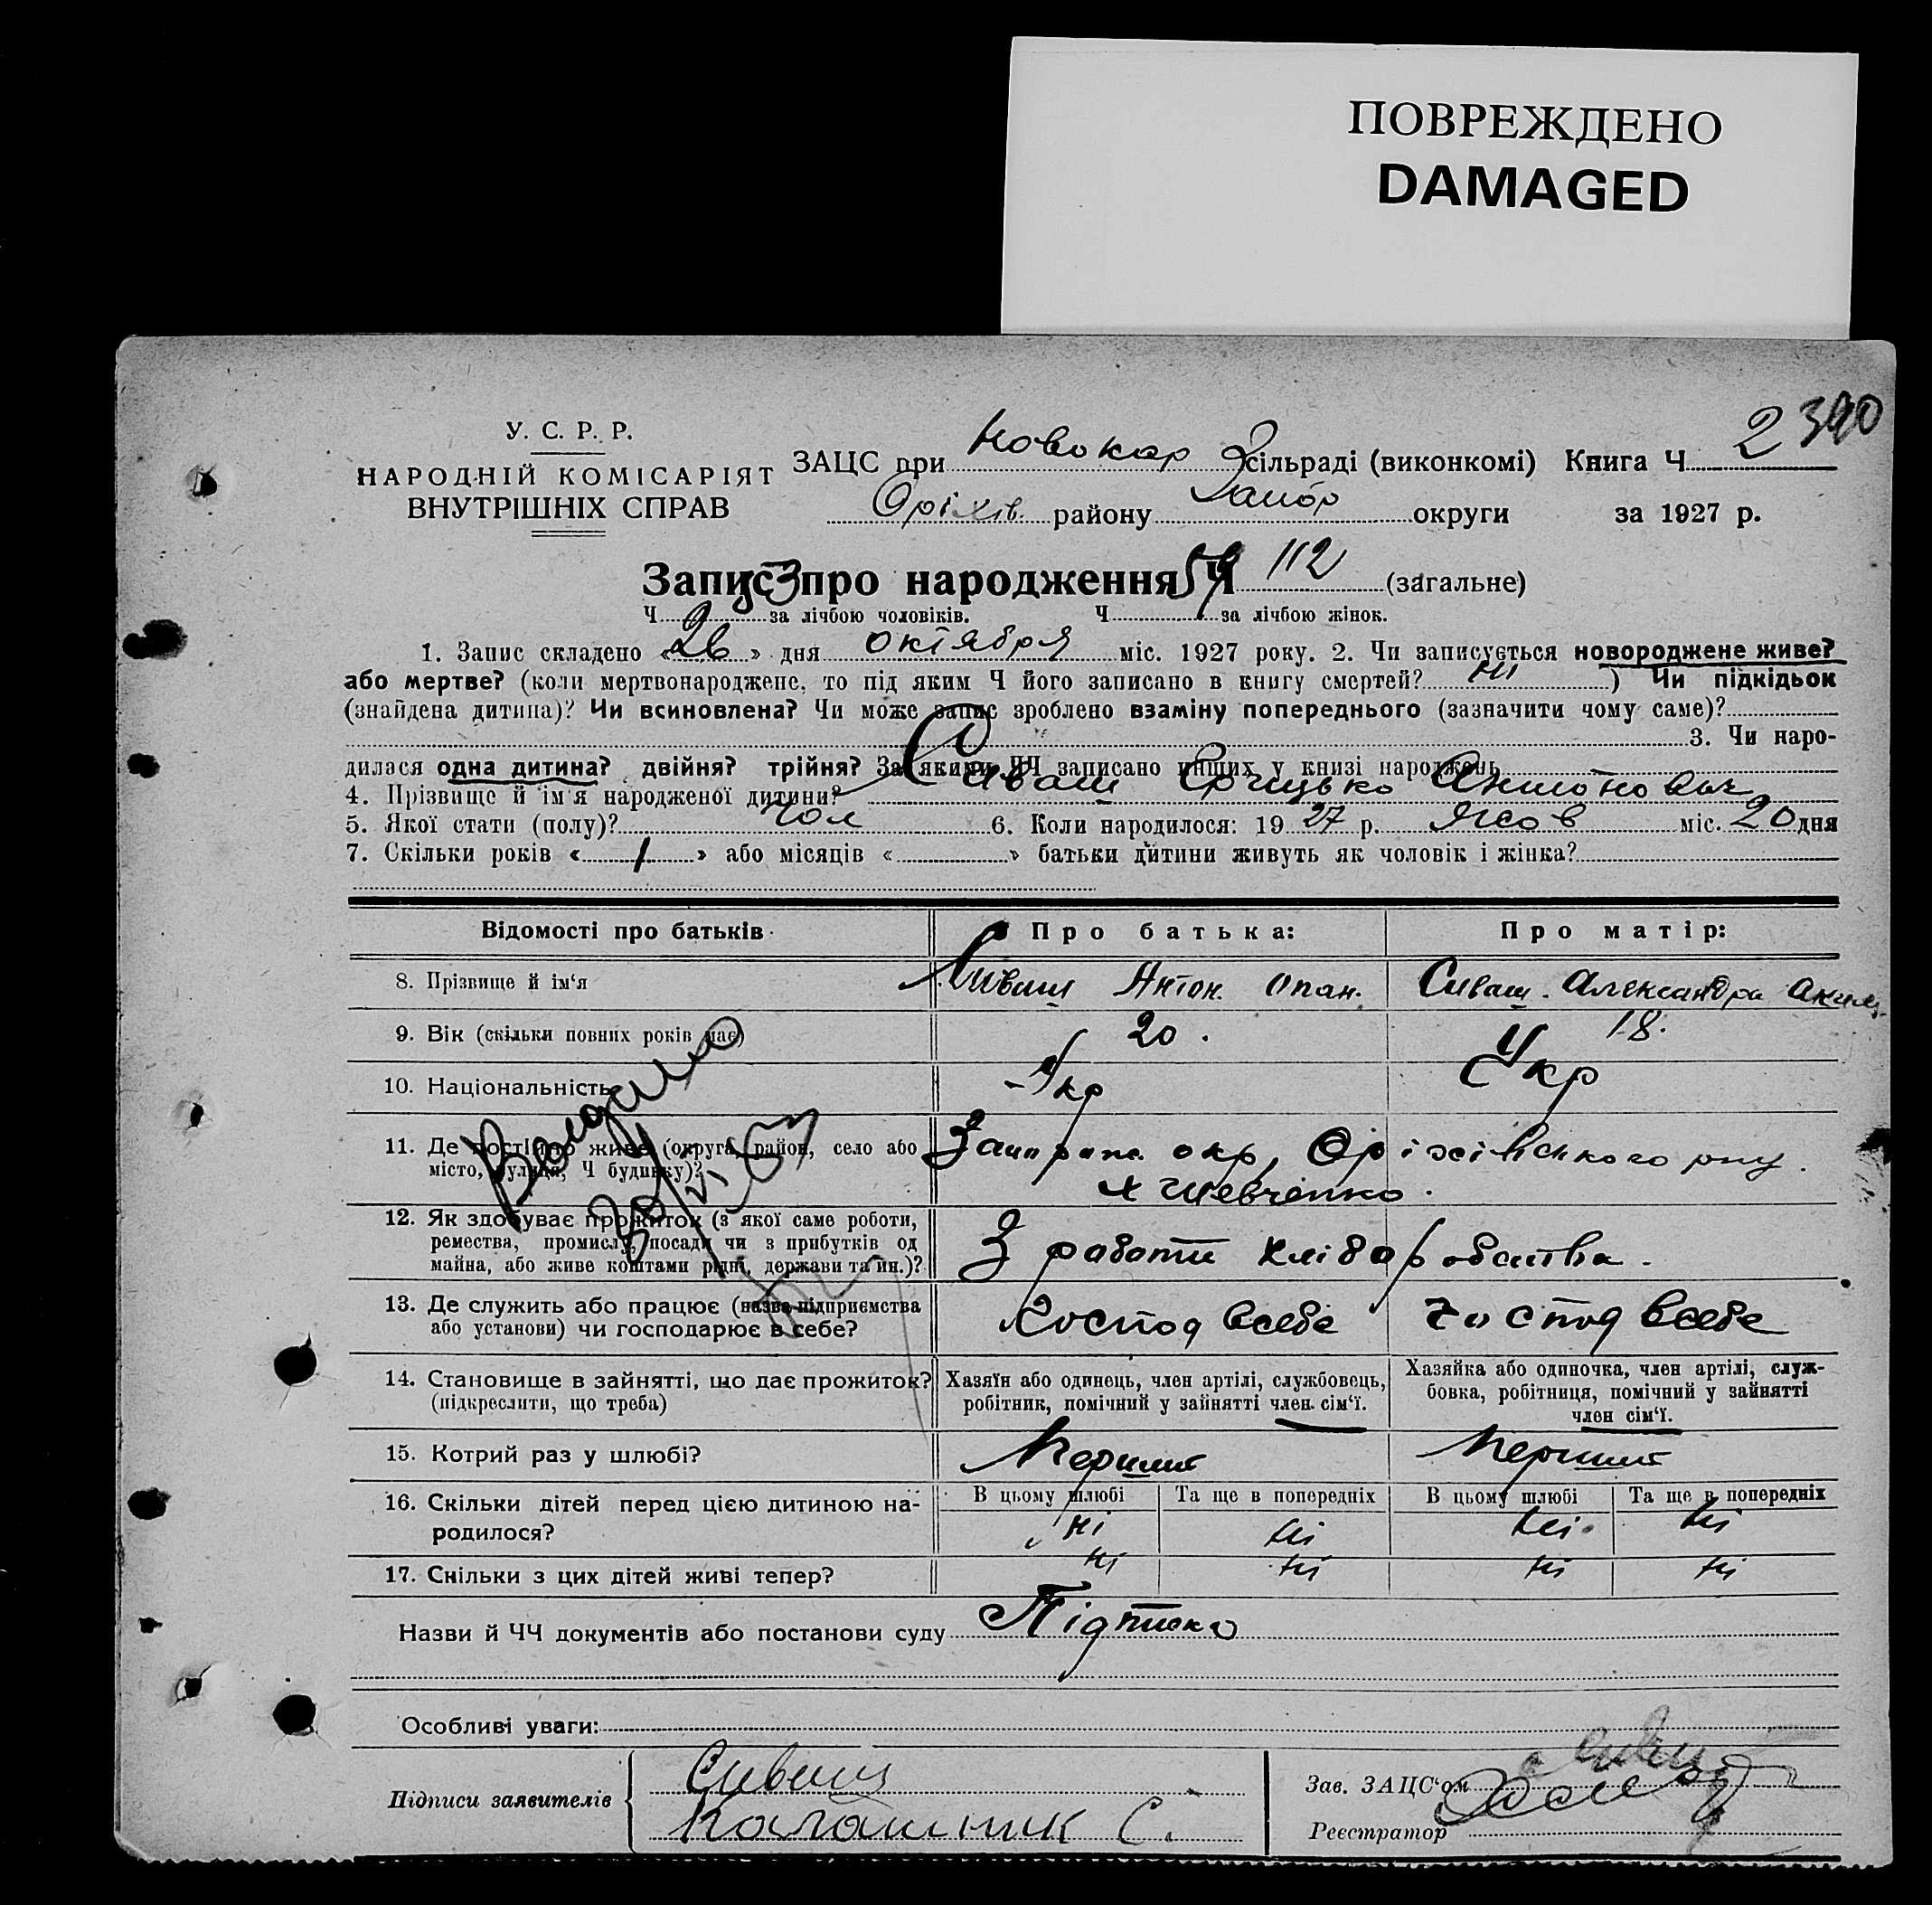 ПОВРЕЖДЕНО
DAMAGED
2 390
У. С. Р. Р.
НАРОДНІЙ КОМІСАРІЯТ
ВНУТРІШНІХ СПРАВ
ЗАЦС при Новокар сільраді (виконкомі) Книга Ч
Оріхів. району Запор округи за 1927 р.
Запис про народження Ч 112 (загальне)
Ч за лічбою чоловіків. Ч за лічбою жінок.
1. Запис складено «26» дня октября міс. 1927 року. 2. Чи записується новороджене живе?
або мертве? (коли мертвонароджене, то під яким Ч його записано в книгу смертей? ні ) Чи підкідьок
(знайдена дитина)? Чи всиновлена? Чи може запис зроблено взаміну попереднього (зазначити чому саме)?
3. Чи наро-
дилася одна дитина? двійня? трійня? За якими ЧЧ записано инших у книзі народжень
4. Прізвище й ім'я народженої дитини? Сиваш Грицько Антонович
5. Якої стати (полу)? чол 6. Коли народилося: 1927 р. Жов міс. 20 дня
7. Скільки років « 1 » або місяців « » батьки дитини живуть як чоловік і жінка?
Відомості про батьків Про батька: Про матір:
8. Прізвище й ім'я Сиваш Антон Опан. Сиваш Александра Аким
9. Вік (скільки повних років має) 20. 18.
10. Національність Укр Укр
11. Де постійно живе (округа, район, село або
місто, вулиця, Ч будинку)? окр, Оріхівського рну.
х Шевченко.
Видано
12. Як здобуває прожиток (з якої саме роботи,
ремества, промислу, посади чи з прибутків од
майна, або живе коштами рідні, держави та ин.)?
З работи хліборобства.
13. Де служить або працює (назва підприємства
або установи) чи господарює в себе? Господ всебе Господ всебе
14. Становище в зайнятті, що дає прожиток?
(підкреслити, що треба)
Хазяїн або одинець, член артілі, службовець,
робітник, помічний у зайнятті член сім'ї.
Хазяйка або одиночка, член артілі, служ-
бовка, робітниця, помічний у зайнятті
член сім'ї.
15. Котрий раз у шлюбі? Перший Перший
16. Скільки дітей перед цією дитиною на-
родилося?
В цьому шлюбі Та ще в попередніх В цьому шлюбі Та ще в попередніх
ні ні ні ні
17. Скільки з цих дітей живі тепер? ні ні ні ні
Назви й ЧЧ документів або постанови суду Підписка
Особливі уваги:
Підписи заявителів
Сиваш
Калашник С.
Зав. ЗАЦС'ом
Реєстратор